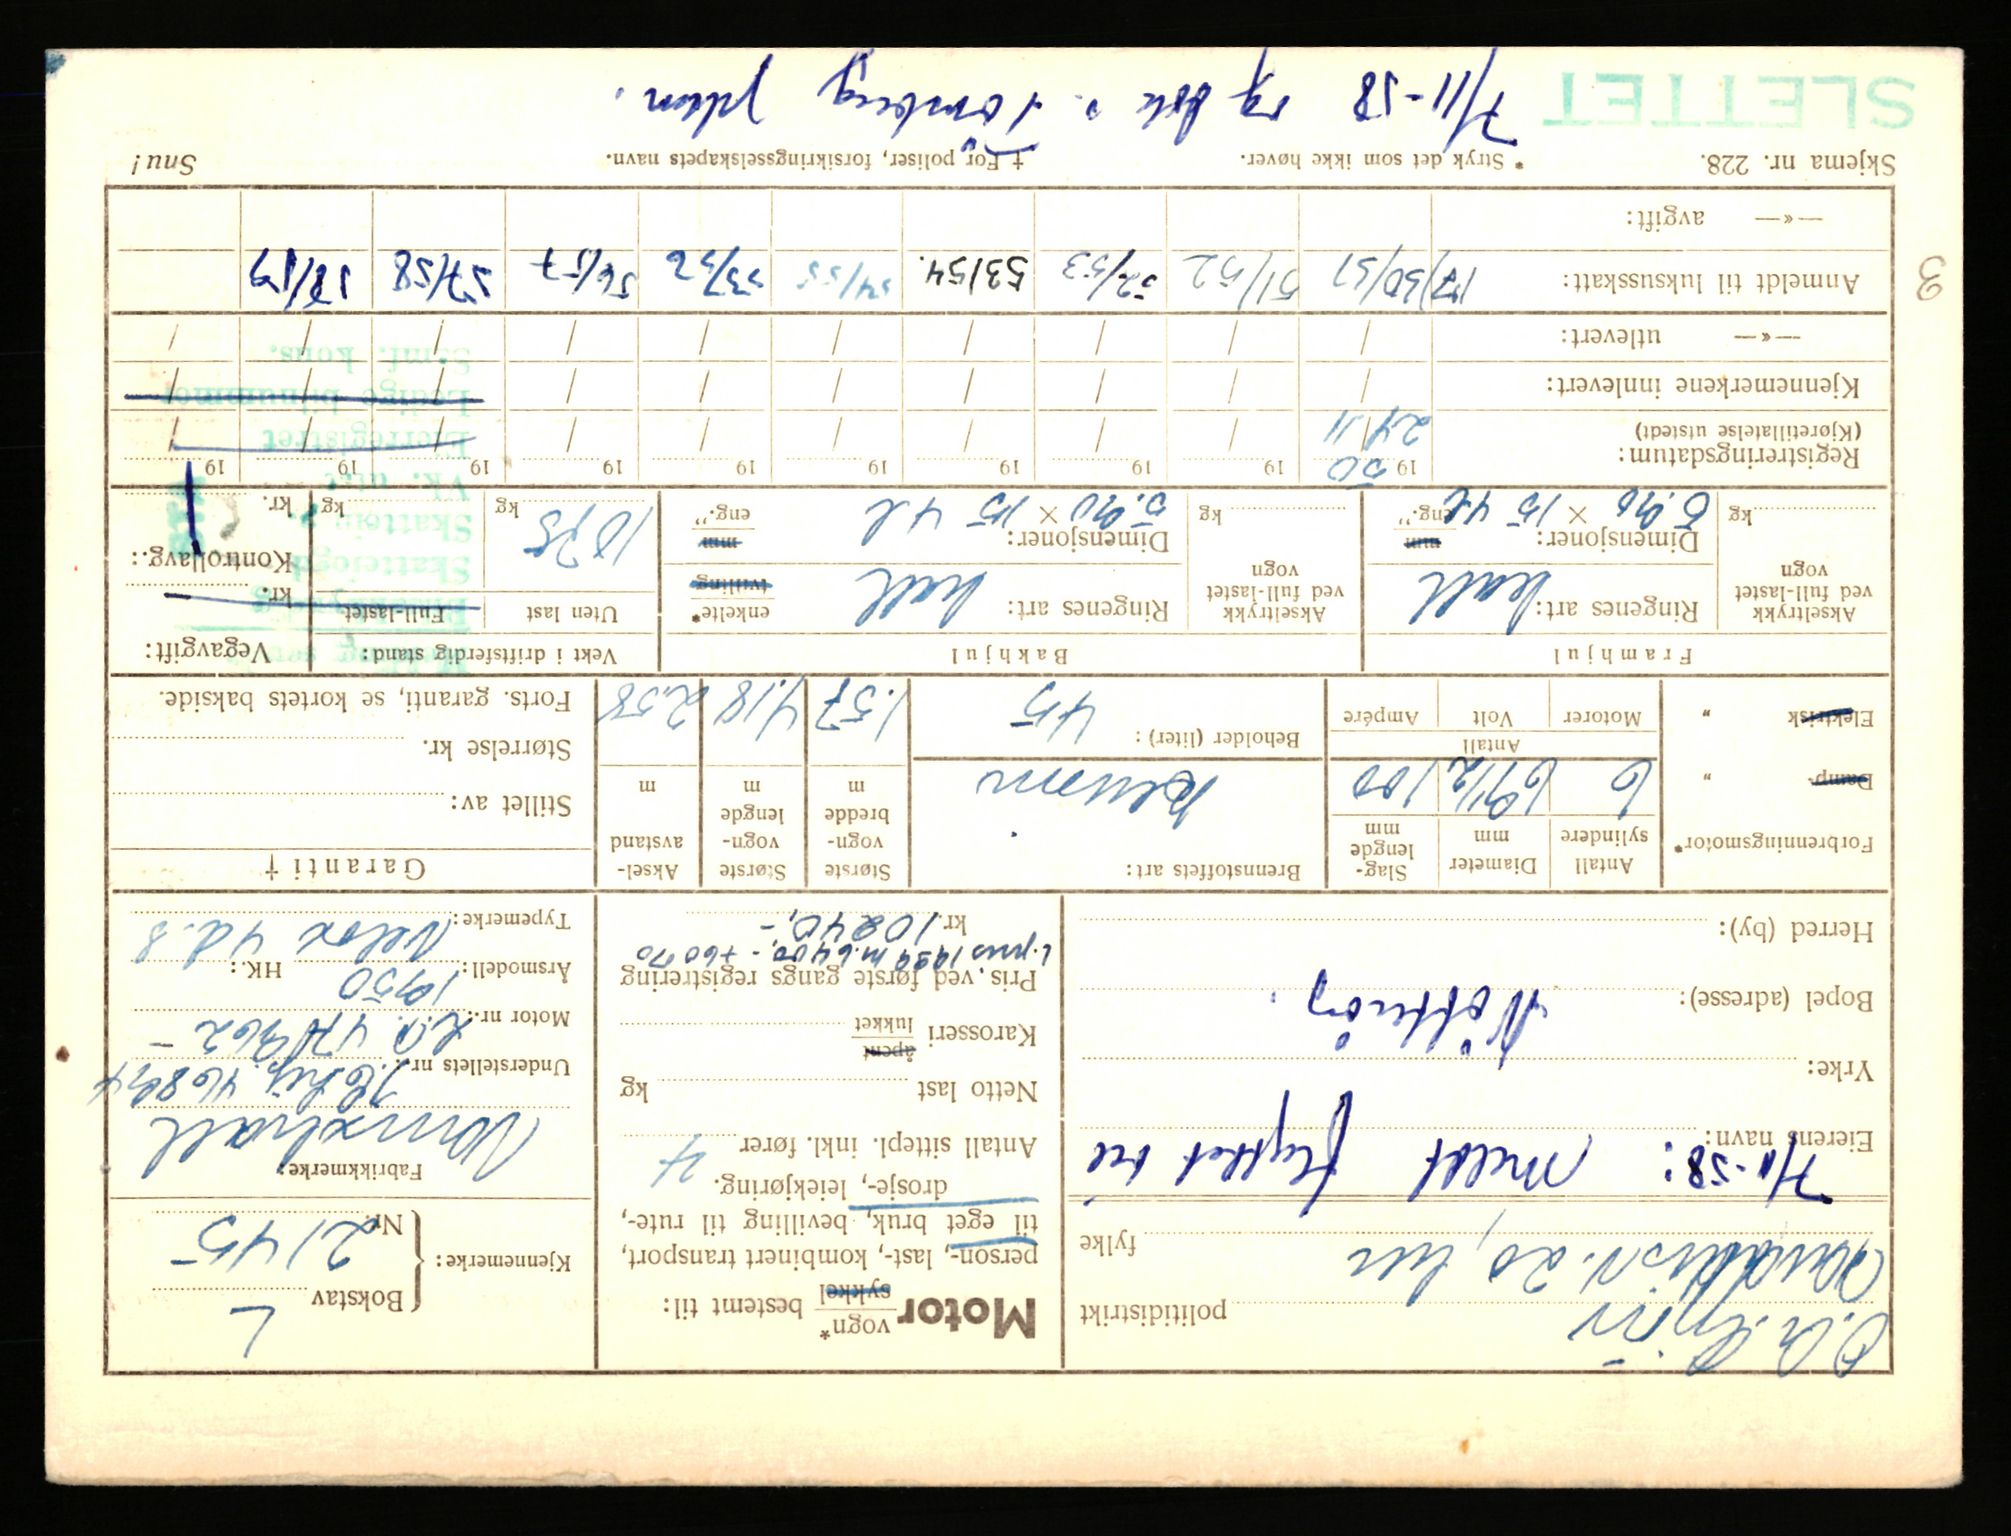 politidistrikt
fylke
7/11-58: Meldt flyttet til
Eierens navn:
Yrke:
Bopel (adresse): Nötteröy.
Herred (by):
Motor vogn* sykkel bestemt til:
person-, last-, kombinert transport,
til eget bruk, bevilling til rute-,
drosje-, leiekjøring.
Antall sittepl. inkl. fører 4
Netto last kg
Karosseri åpent lukket
Pris, ved første gangs registrering
kr. 10240,-
Kjennemerke: Bokstav L
Nr. 2145
Fabrikkmerke:
Vauxhall
Understellets nr.:
Motor nr.:
Årsmodell: 1950 HK.:
Typemerke: Velox 4 d. s
Forbrenningsmotor*
Damp- "
Elektrisk "
Antall sylindere 6
Diameter mm 69 1/2
Slaglengde mm 100
Antall
Motorer
Volt
Ampére
Brennstoffets art:
Bensin
Beholder (liter): 45
Største vognbredde m 1.57
Største vognlengde m 4.18
Akselavstand m 2.58
Garanti †
Stillet av:
Størrelse kr.
Forts. garanti, se kortets bakside.
Framhjul
Akseltrykk ved full-lastet vogn
kg
Ringenes art: hall
Dimensjoner: mm eng."
5.90 × 15 4 l
Bakhjul
Akseltrykk ved full-lastet vogn
kg
Ringenes art: hall
enkelte* tvilling
Dimensjoner: mm eng."
5.90 × 15 4 l
Vekt i driftsferdig stand:
Uten last
1075 kg
Full-lastet
kg
Vegavgift:
kr.
Kontrollavg.:
kr.
Skattefogd
Eierregistret
Ledige bilnummer
Samf. kons.
Registreringsdatum: 1950 19 19 19 19 19 19 19 19 19
(Kjøretillatelse utstedt) 24/11
Kjennemerkene innlevert:
—«— utlevert:
Anmeldt til luksusskatt: 50/51 51/52 52/53 53/54. 54/55 56/57 57/58 58/59
—«— avgift:
3
Skjema nr. 228.
* Stryk det som ikke høver.
† For poliser, forsikringsselskapets navn.
Snu!
SLETTET
7/11-58